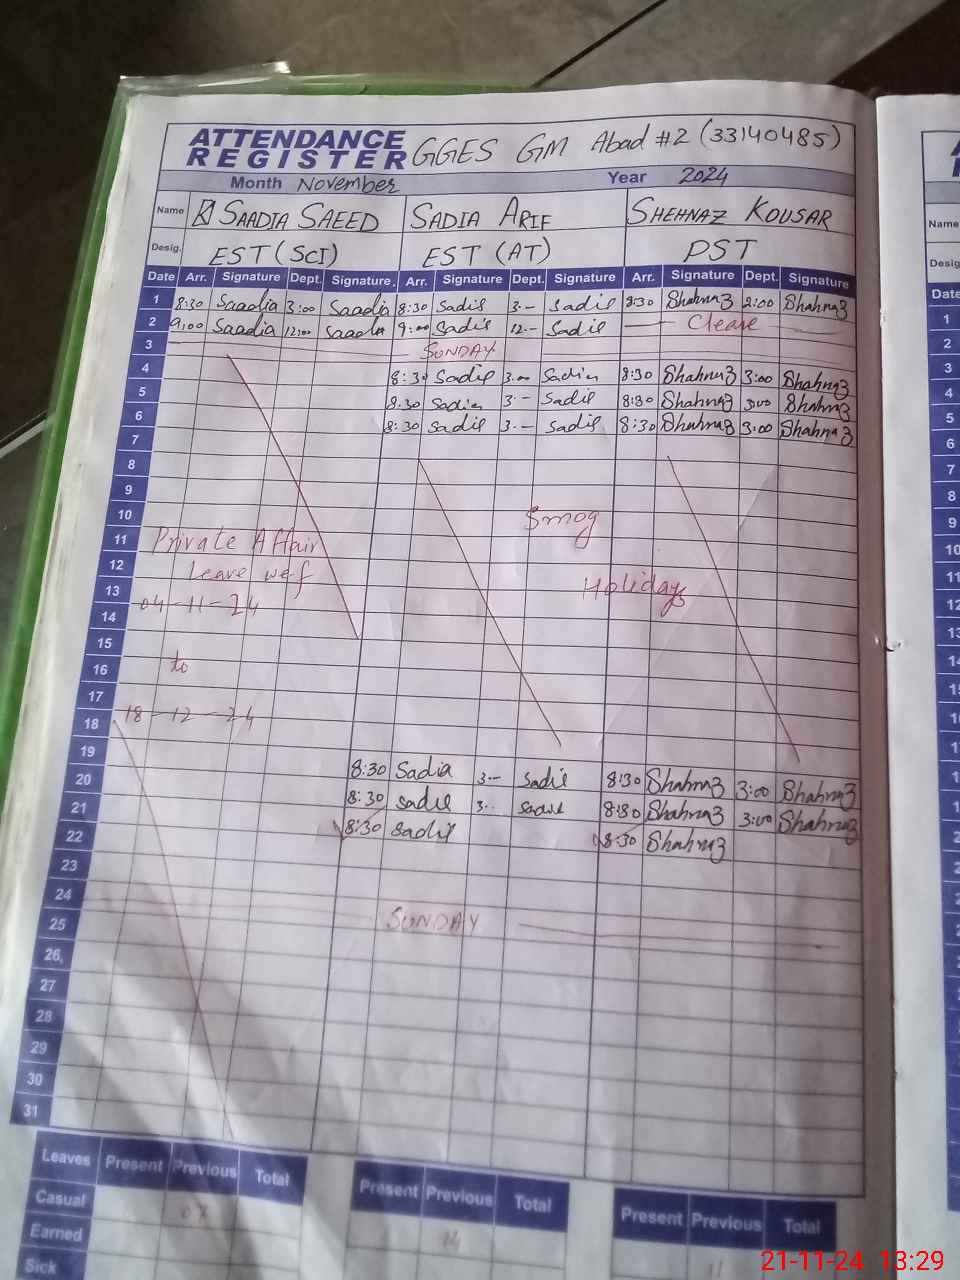 ATTENDANCE REGISTER GGES GM Abad #2 (33140485)
Month November Year 2024
Name SAADIA SAEED SADIA ARIF SHEHNAZ KOUSAR
Desig. EST (SCI) EST (AT) PST
Date Arr. Signature Dept. Signature. Arr. Signature Dept. Signature Arr. Signature Dept. Signature
1 8:30 Saadia 3:00 Saadia 8:30 Sadia 3.- Sadia 8:30 Shahnaz 2:00 Shahnaz
2 9:00 Saadia 12:00 Saadia 9:00 Sadia 12.- Sadia Cleave
3 SUNDAY
4 8:30 Sadia 3.00 Sadia 8:30 Shahnaz 3:00 Shahnaz
5 8:30 Sadia 3.- Sadia 8:30 Shahnaz 3:00 Shahnaz
6 8:30 Sadia 3.- Sadia 8:30 Shahnaz 3:00 Shahnaz
7
8
9
10 Smog
11 Private Affair
12 Leave wef
13 04-11-24 Holidays
14
15
16 to
17
18 18-12-24
19
20 8:30 Sadia 3.- Sadia 8:30 Shahnaz 3:00 Shahnaz
21 8:30 Sadia 3.. Sadia 8:30 Shahnaz 3:00 Shahnaz
22 8:30 Sadia 8:30 Shahnaz
23
24 SUNDAY
25
26
27
28
29
30
31
Leaves Present Previous Total Present Previous Total Present Previous Total
Casual
Earned
Sick
Name
Desig
Date
1
2
3
4
5
6
7
8
9
10
11
12
21-11-24 13:29